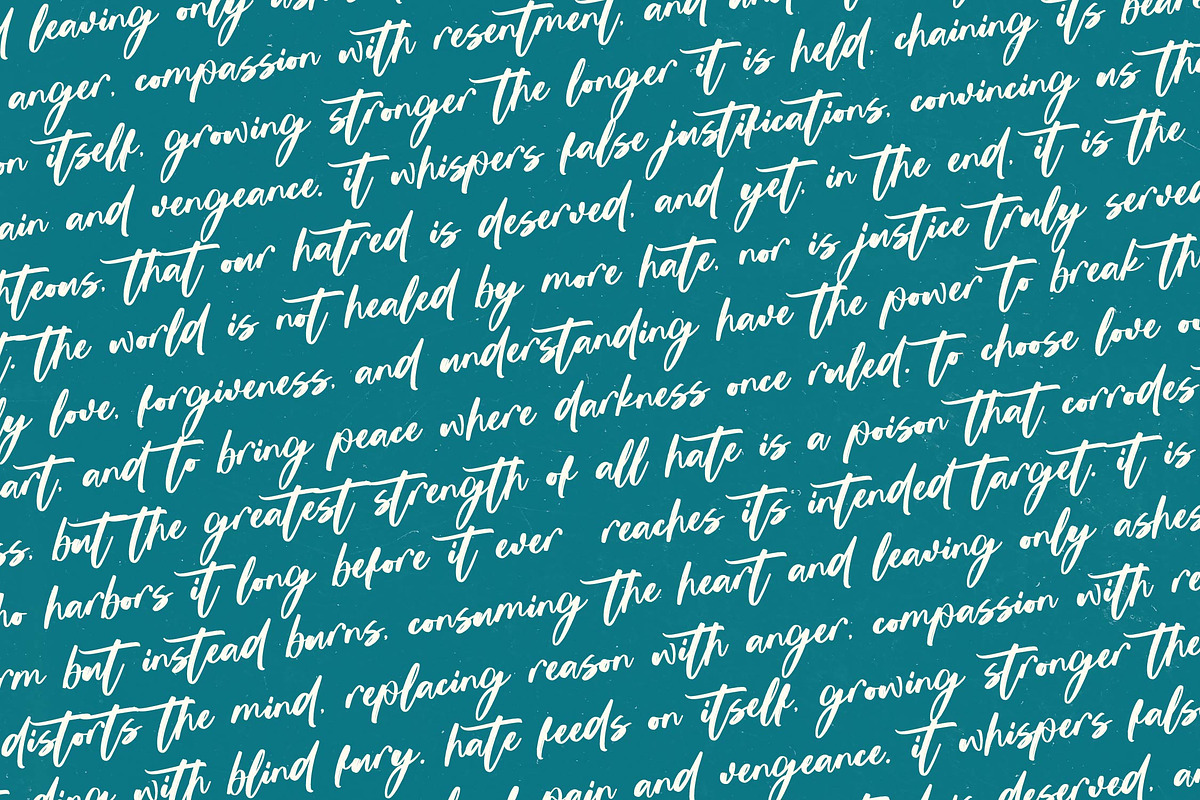 leaving only
anger, compassion with resentment, and
on itself, growing stronger the longer it is held, chaining its
and vengeance. it whispers false justifications, convincing us
that our hatred is deserved, and yet, in the end, it is the
the world is not healed by more hate, nor is justice truly served
love, forgiveness, and understanding have the power to break
and to bring peace where darkness once ruled. to choose love
but the greatest strength of all hate is a poison that corrodes
harbors it long before it ever reaches its intended target. it is
but instead burns, consuming the heart and leaving only ashes
distorts the mind, replacing reason with anger, compassion with
with blind fury. hate feeds on itself, growing stronger the
pain and vengeance. it whispers
is deserved,